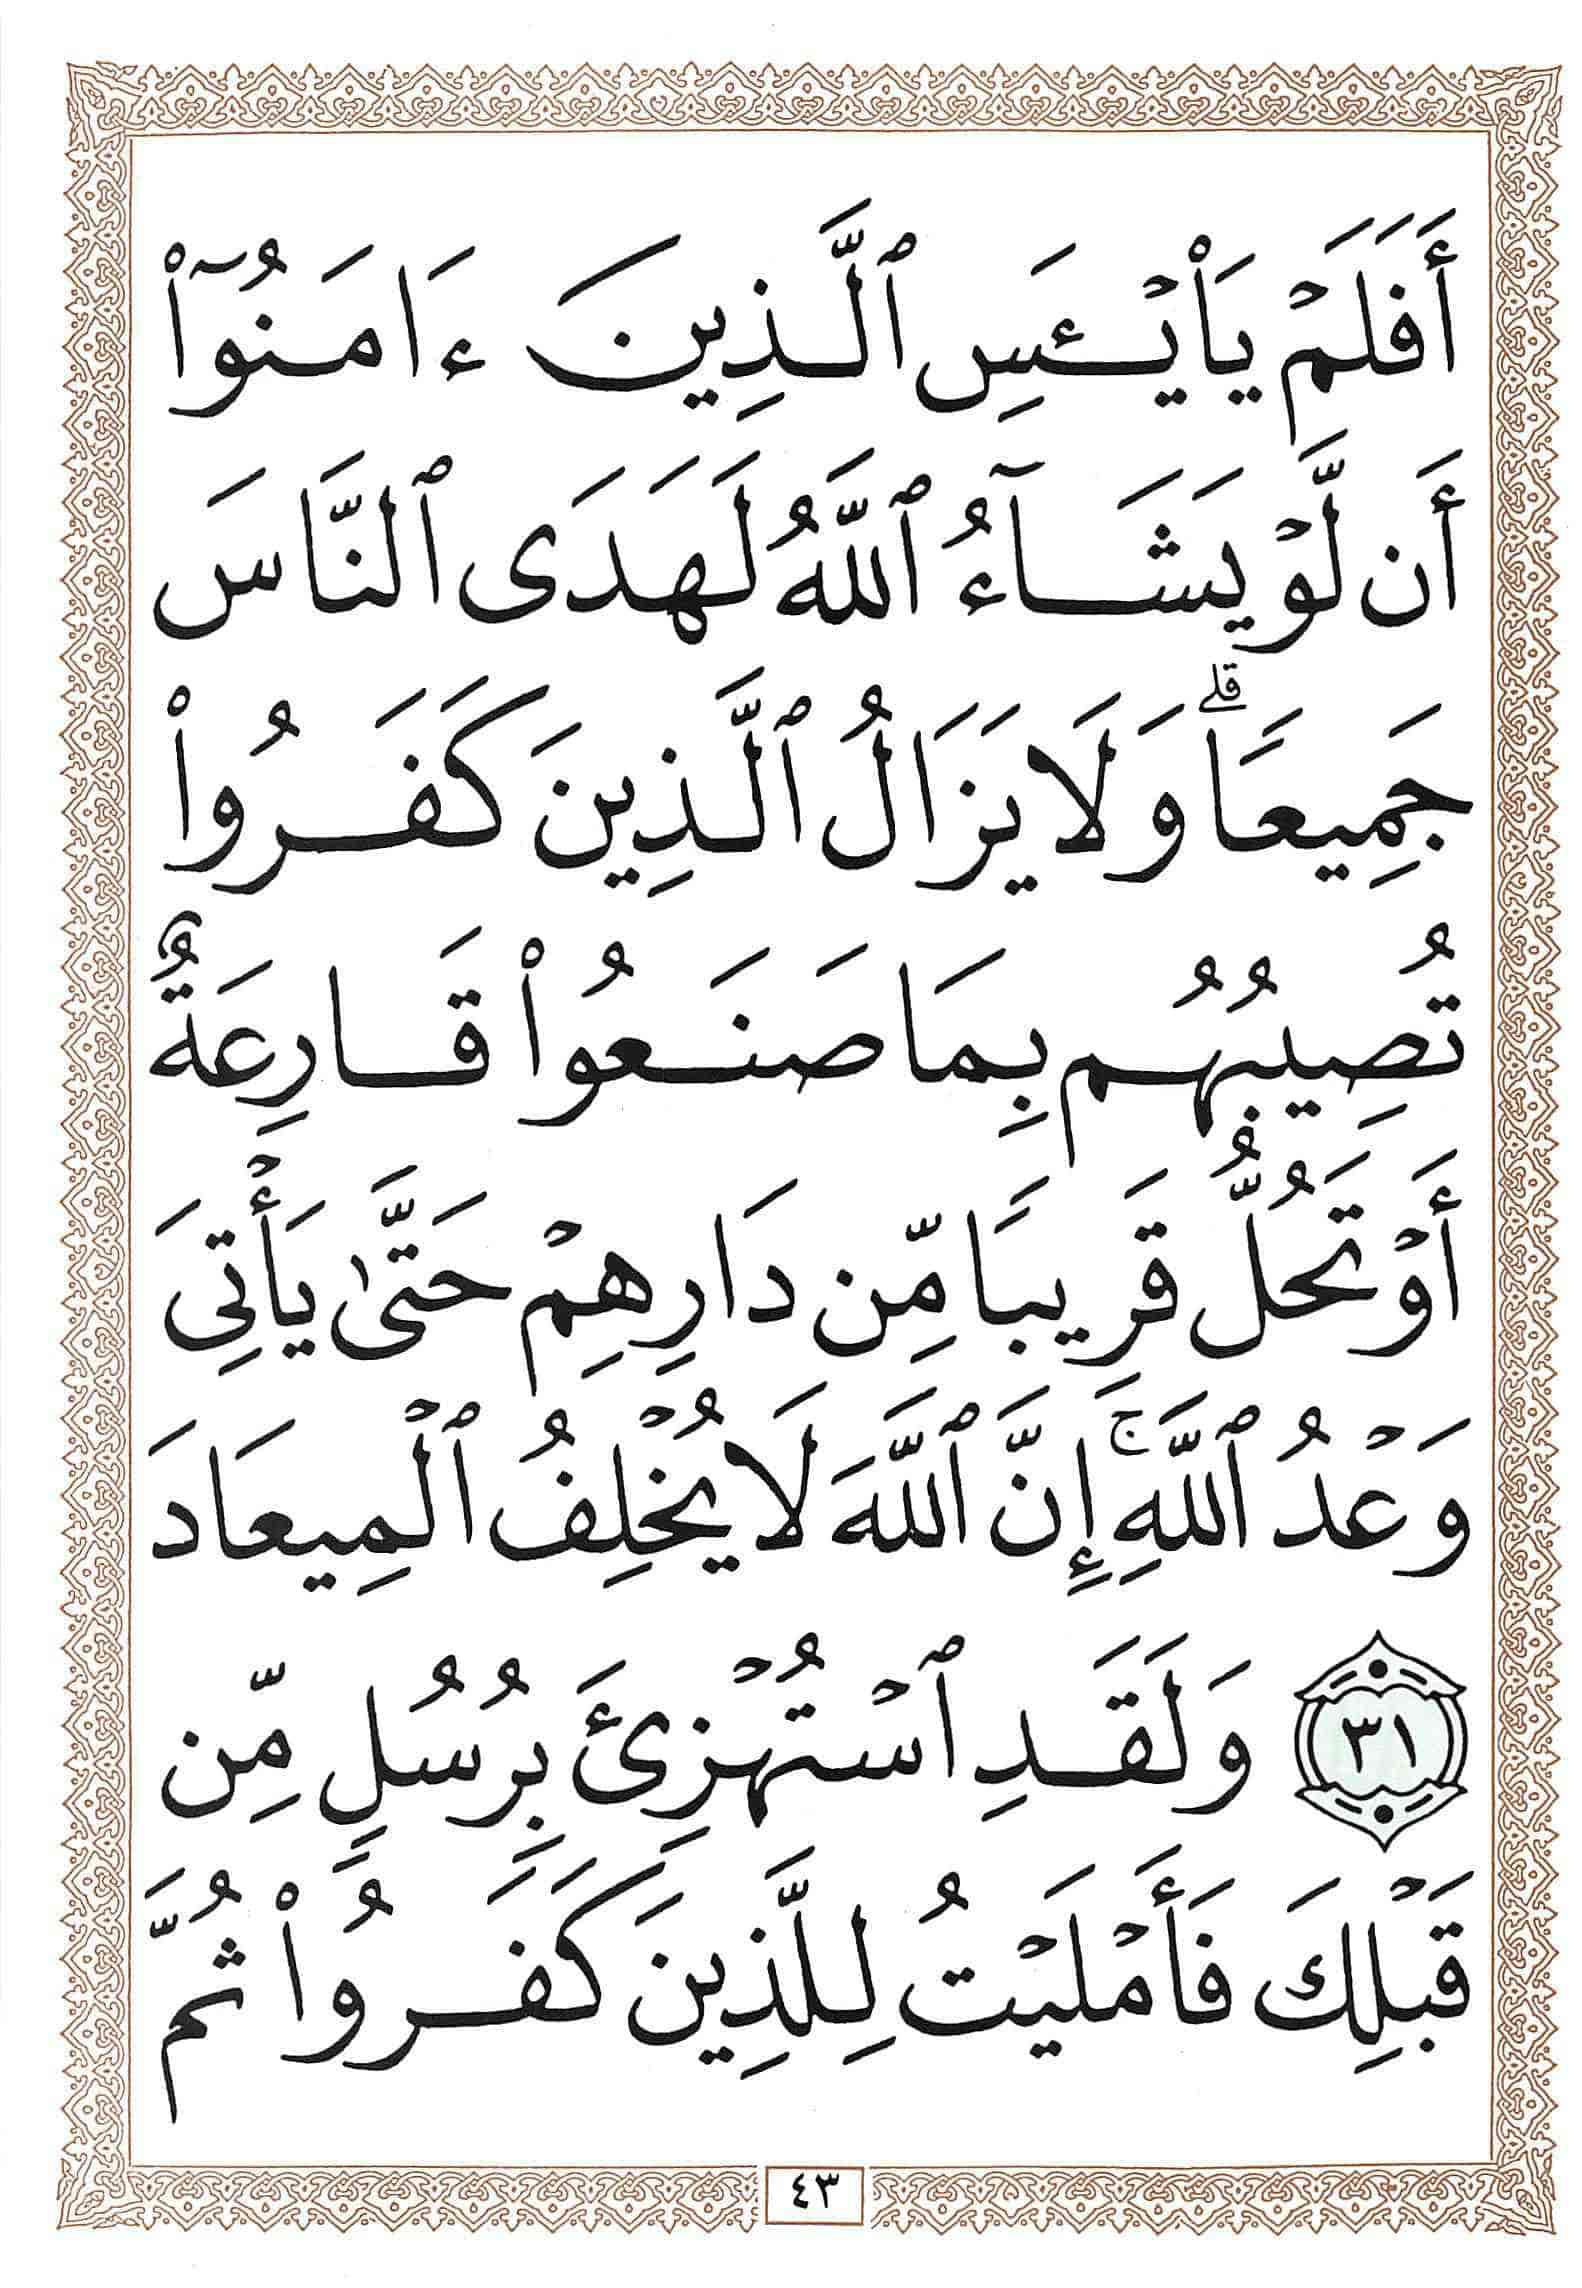 أَفَلَمْ يَاْيْـَٔسِ ٱلَّذِينَ ءَامَنُوٓا۟
أَن لَّوْ يَشَآءُ ٱللَّهُ لَهَدَى ٱلنَّاسَ
جَمِيعًا ۗ وَلَا يَزَالُ ٱلَّذِينَ كَفَرُوا۟
تُصِيبُهُم بِمَا صَنَعُوا۟ قَارِعَةٌ
أَوْ تَحُلُّ قَرِيبًا مِّن دَارِهِمْ حَتَّىٰ يَأْتِىَ
وَعْدُ ٱللَّهِ ۚ إِنَّ ٱللَّهَ لَا يُخْلِفُ ٱلْمِيعَادَ
٣١ وَلَقَدِ ٱسْتُهْزِئَ بِرُسُلٍ مِّن
قَبْلِكَ فَأَمْلَيْتُ لِلَّذِينَ كَفَرُوا۟ ثُمَّ
٤٣